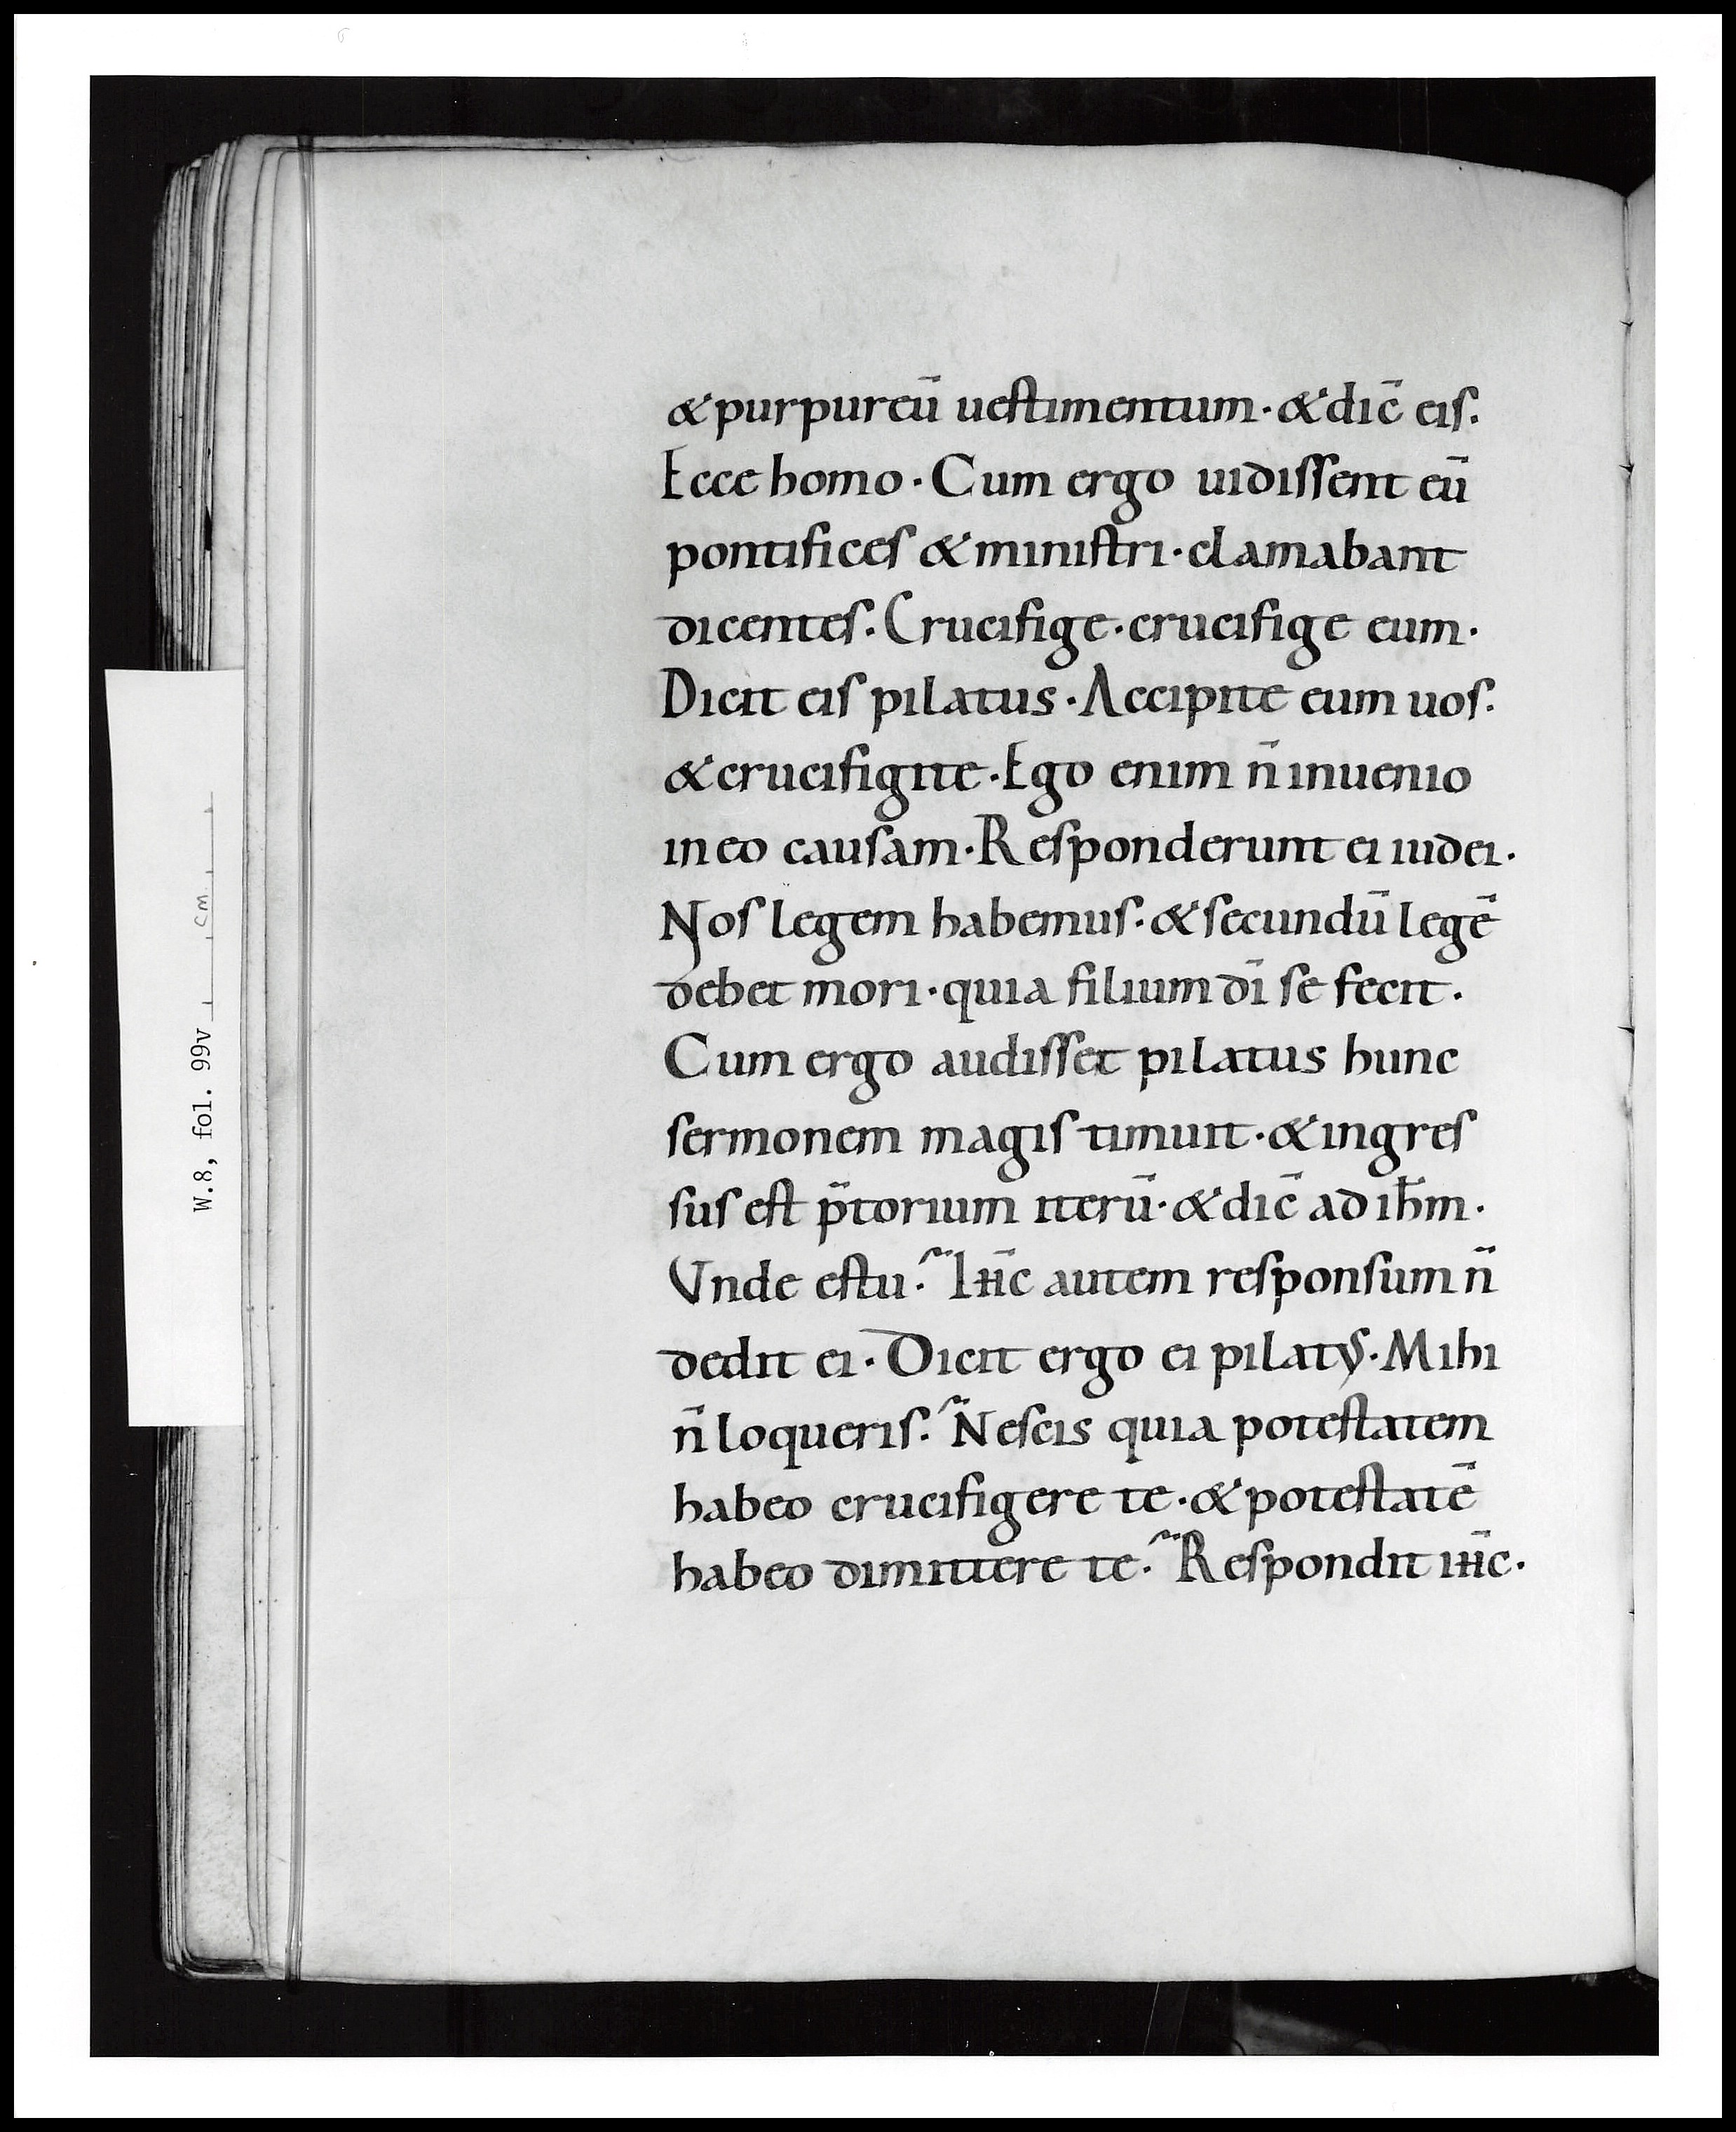 & purpureū uestimentum· & dic̄ eis.
Ecce homo· Cum ergo uidissent eū
pontifices & ministri· clamabant
dicentes. Crucifige· crucifige eum·
Dicit eis pilatus· Accipite eum uos.
& crucifigite· Ego enim n̄ inuenio
in eo causam· Responderunt ei iudei·
Nos legem habemus· & secundū legē
debet mori· quia filium dī se fecit.
Cum ergo audisset pilatus hunc
sermonem magis timuit· & ingres
sus est p̄torium iterū· & dic̄ ad ihm̄·
Vnde es tu? Ihc̄ autem responsum n̄
dedit ei· Dicit ergo ei pilatus· Mihi
n̄ loqueris? Nescis quia potestatem
habeo crucifigere te· & potestatē
habeo dimittere te? Respondit ihc̄·
W.8, fol. 99v
cm.